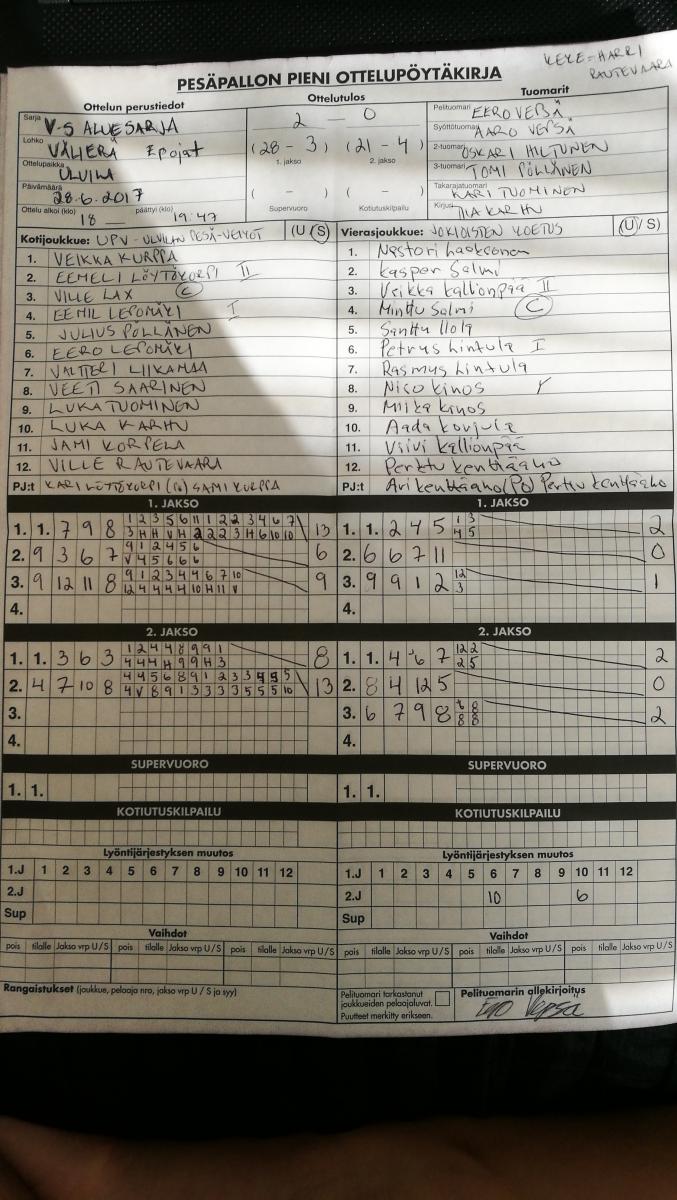 KEKE = HARRI
RAUTEVAARA
PESÄPALLON PIENI OTTELUPÖYTÄKIRJA
Ottelun perustiedot
Sarja V-S ALUESARJA
Lohko VÄLIERÄ Epojat
Ottelupaikka ULVILA
Päivämäärä 28.6.2017
Ottelu alkoi (klo) 18 päättyi (klo) 19:47
Ottelutulos
2 — 0
(28 - 3) (21 - 4)
1. jakso 2. jakso
( - ) ( - )
Supervuoro Kotiutuskilpailu
Tuomarit
Pelituomari EERO VEPSÄ
Syöttötuomari AARO VEPSÄ
2-tuomari OSKARI HILTUNEN
3-tuomari TOMI PÖLLÄNEN
Takarajatuomari KARI TUOMINEN
Kirjuri TIIA KARHU
Kotijoukkue: UPV - ULVILAN PESÄ-VEIKOT (U/S)
1. VEIKKA KURPPA
2. EEMELI LÖYTÖKORPI II
3. VILLE LAX C
4. EEMIL LEPOMÄKI I
5. JULIUS PÖLLÄNEN
6. EERO LEPOMÄKI
7. VALTTERI LIIKAMAA
8. VEETI SAARINEN
9. LUKA TUOMINEN
10. LUKA KARHU
11. JAMI KORPELA
12. VILLE RAUTEVAARA
PJ:t KARI LÖYTÖKORPI (PJ) SAMI KURPPA
Vierasjoukkue: JOKIOISTEN KOETUS (U/S)
1. Nestori
2. Kasper Salmi
3. Veikka Kallionpää II
4. Minttu Salmi C
5. Santtu Ilola
6. Petrus Hintula I
7. Rasmus Hintula
8. Nico Kinos
9. Miika Kinos
10. Aada
11. Viivi Kallionpää
12. Perttu Kenttäaho
PJ:t Ari Kenttäaho (PJ) Perttu Kenttäaho
1. JAKSO
1. 1. 7 9 8 1 2 3 5 6 11 1 2 2 3 4 6 7 13
3 H H V H 2 2 2 3 H 6 10 10
2. 9 3 6 7 9 1 2 4 5 6 6
V 4 5 6 6 6
3. 9 12 11 8 9 1 2 3 4 4 6 7 10 9
12 4 4 4 4 10 H 11 V
4.
1. JAKSO
1. 1. 2 4 5 1 3 2
4 5
2. 6 6 7 11 0
3. 9 9 1 2 12 1
3
4.
2. JAKSO
1. 1. 3 6 3 1 2 4 4 8 9 9 1 8
4 4 4 H 9 9 H 3
2. 4 7 10 8 4 4 5 6 8 9 1 2 3 3 4 5 5 13
4 V 8 9 1 3 3 3 3 5 5 5 10
3.
4.
2. JAKSO
1. 1. 4 6 7 12 2 2
2 5
2. 8 4 12 5 0
3. 6 7 9 8 6 8 2
8 8
4.
SUPERVUORO
1. 1.
SUPERVUORO
1. 1.
KOTIUTUSKILPAILU
KOTIUTUSKILPAILU
Lyöntijärjestyksen muutos
1.J 1 2 3 4 5 6 7 8 9 10 11 12
2.J
Sup
Lyöntijärjestyksen muutos
1.J 1 2 3 4 5 6 7 8 9 10 11 12
2.J 10 6
Sup
Vaihdot
pois tilalle Jakso vrp U/S pois tilalle Jakso vrp U/S pois tilalle Jakso vrp U/S
Vaihdot
pois tilalle Jakso vrp U/S pois tilalle Jakso vrp U/S pois tilalle Jakso vrp U/S
Rangaistukset (joukkue, pelaaja nro, jakso vrp U / S ja syy)
Pelituomari tarkastanut
joukkueiden pelaajaluvat.
Puutteet merkitty erikseen.
Pelituomarin allekirjoitus
Eero Vepsä